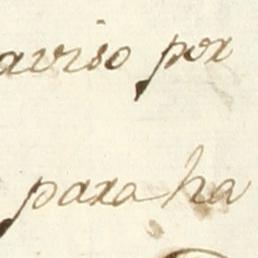 aviso por
para ha